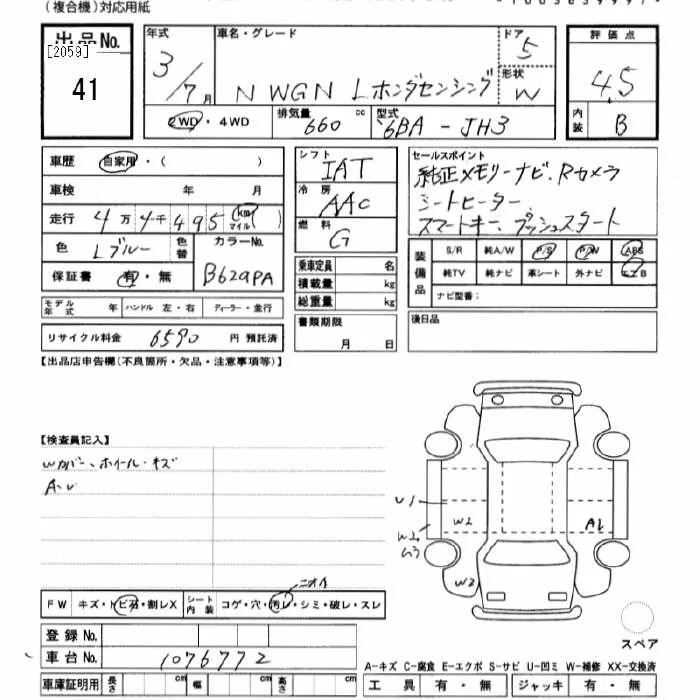 (複合機)対応用紙
出品No.
[2059]
41
年式 3/7月
車名・グレード N WGN L ホンダセンシング
ドア 5
形状 W
評価点 4.5
内装 B
2WD・4WD
排気量 660 cc
型式 6BA-JH3
車歴 自家用・( )
車検 年 月
走行 4万4千495 km マイル ( )
色 Lブルー 色替 カラーNo. B629PA
保証書 有・無
モデル年式 年 ハンドル 左・右 ディーラー・並行
リサイクル料金 6590 円 預託済
シフト IAT
冷房 AAC
燃料 G
乗車定員 名
積載量 kg
総重量 kg
書類期限
月 日
セールスポイント
純正メモリーナビ、Rカメラ
シートヒーター、
スマートキー、プッシュスタート
装備品
S/R 純A/W P/S P/W ABS
純TV 純ナビ 革シート 外ナビ エアB
ナビ型番:
後日品
【出品店申告欄(不良箇所・欠品・注意事項等)】
【検査員記入】
Wカバー、ホイール・キズ
A・U
U1
W2
W2
U3
A1
W2
ニオイ
FW キズ・トビ石・割レX シート内装 コゲ・穴・汚レ・シミ・破レ・スレ
登録No.
車台No. 1076772
車庫証明用 長さ cm 幅 cm 高さ cm
スペア
A-キズ C-腐食 E-エクボ S-サビ U-凹ミ W-補修 XX-交換済
工具 有・無 ジャッキ 有・無